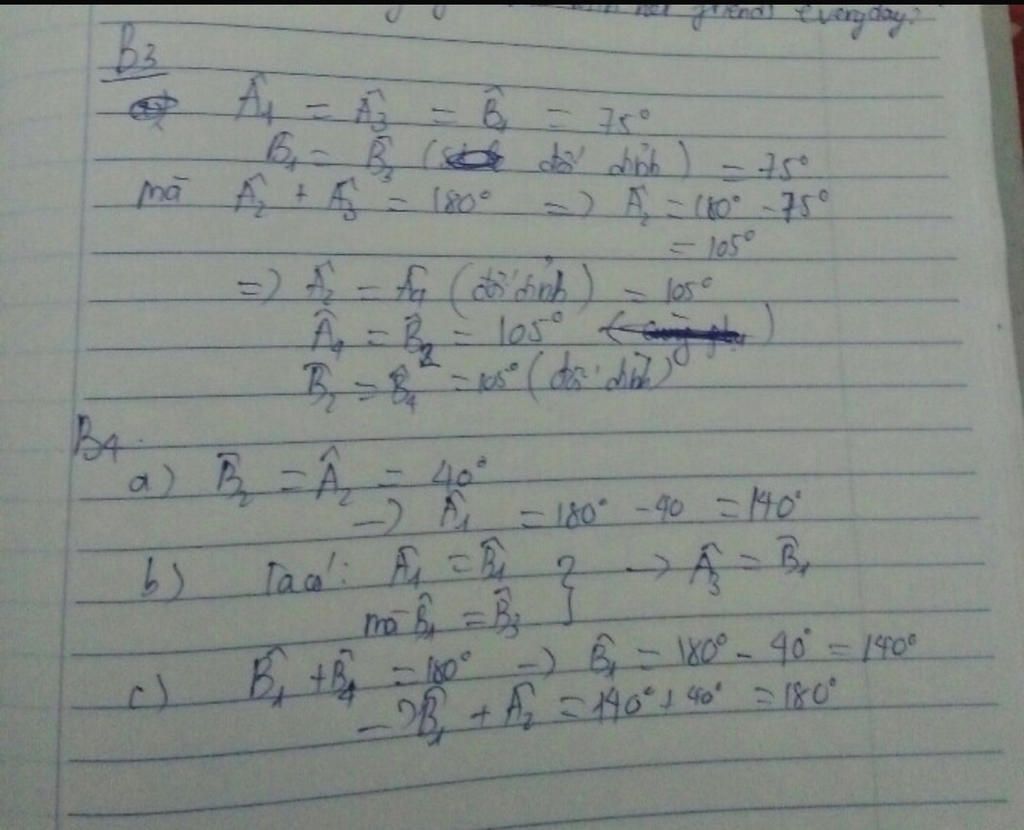 friends everyday?
B3
Â₁ = Â₃ = B̂₁ = 75°
B̂₁ = B̂₃ (đối đỉnh) = 75°
mà Â₂ + Â₃ = 180° => Â₂ = 180° - 75°
= 105°
=> Â₂ = Â₄ (đối đỉnh) = 105°
Â₄ = B̂₂ = 105°
B̂₂ = B̂₄ = 105° (đối đỉnh)
B4.
a) B̂₂ = Â₂ = 40°
-> Â₁ = 180° - 40 = 140°
b) Ta có: Â₁ = B̂₁ } -> Â₃ = B̂₁
mà B̂₁ = B̂₃
c) B̂₁ + B̂₄ = 180° -> B̂₁ = 180° - 40° = 140°
-> B̂₁ + Â₂ = 140° + 40° = 180°